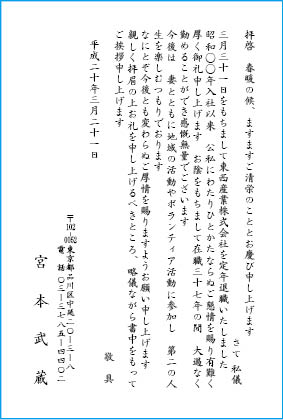 拝啓　春暖の候、ますますご清栄のこととお慶び申し上げます
さて　私儀
三月三十一日をもちまして東西産業株式会社を定年退職いたしました
昭和〇〇年入社以来　公私にわたりひとかたならぬご懇情を賜り有難く
厚く御礼申し上げます　お陰をもちまして在職三十七年の間　大過なく
勤めることができ感慨無量でございます
今後は　妻とともに地域の活動やボランティア活動に参加し　第二の人
生を楽しむつもりでおります
なにとぞ今後とも変わらぬご厚情を賜りますようお願い申し上げます
親しく拝眉の上お礼を申し上げるべきところ、略儀ながら書中をもって
ご挨拶申し上げます
敬具
平成二十年三月二十一日
〒102-0052 東京都品川区中延二〇-三-八
電話〇三-三七八五-四四〇二
宮本武蔵